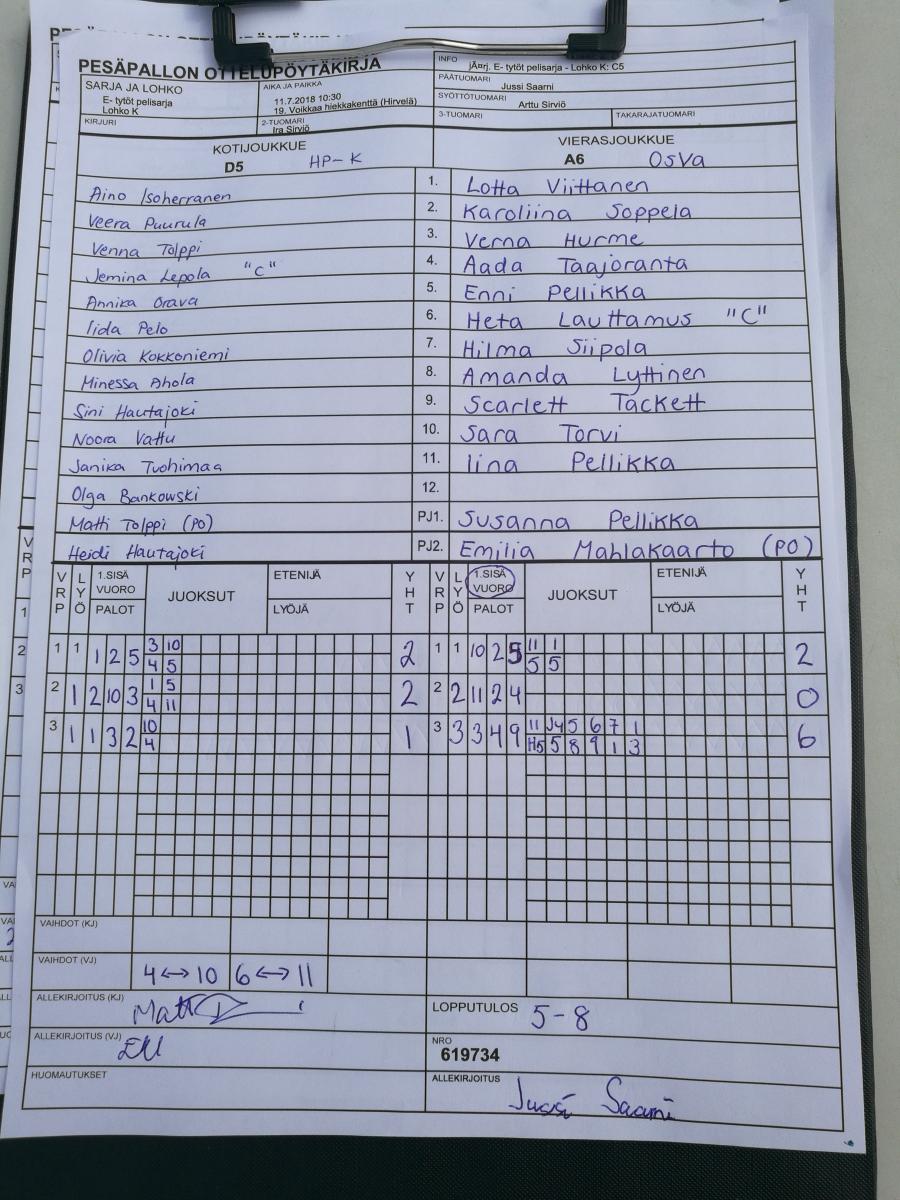 PESÄPALLON OTTELUPÖYTÄKIRJA
SARJA JA LOHKO
E- tytöt pelisarja
Lohko K
AIKA JA PAIKKA
11.7.2018 10:30
19. Voikkaa hiekkakenttä (Hirvelä)
INFO
jÄ¤rj. E- tytöt pelisarja - Lohko K: C5
PÄÄTUOMARI
Jussi Saarni
SYÖTTÖTUOMARI
Arttu Sirviö
KIRJURI
2-TUOMARI
Ira Sirviö
3-TUOMARI
TAKARAJATUOMARI
KOTIJOUKKUE
D5 HP-K
VIERASJOUKKUE
A6 OsVa
Aino Isoherranen 1. Lotta Viittanen
Veera Puurula 2. Karoliina Soppela
Venna Tolppi 3. Verna Hurme
Jemina Lepola "C" 4. Aada Taajoranta
Annika Orava 5. Enni Pellikka
Iida Pelo 6. Heta Lauttamus "C"
Olivia Kokkoniemi 7. Hilma Siipola
Minessa Ahola 8. Amanda Lyttinen
Sini Hautajoki 9. Scarlett Tackett
Noora Vattu 10. Sara Torvi
Janika Tuohimaa 11. Iina Pellikka
Olga Bankowski 12.
Matti Tolppi (PO) PJ1. Susanna Pellikka
Heidi Hautajoki PJ2. Emilia Mahlakaarto (PO)
VRP LYÖ 1.SISÄ VUORO PALOT JUOKSUT ETENIJÄ LYÖJÄ YHT VRP LYÖ 1.SISÄ VUORO PALOT JUOKSUT ETENIJÄ LYÖJÄ YHT
1 1 1 2 5 3 10 2 1 1 10 2 5 11 1 2
4 5 5 5
2 1 2 10 3 1 5 2 2 2 11 2 4 0
4 11
3 1 1 3 2 10 1 3 3 3 4 9 11 J4 5 6 7 1 6
4 H5 5 8 9 1 3
VAIHDOT (KJ)
VAIHDOT (VJ) 4↔10 6↔11
ALLEKIRJOITUS (KJ)
LOPPUTULOS 5-8
ALLEKIRJOITUS (VJ) EM
NRO
619734
HUOMAUTUKSET
ALLEKIRJOITUS Jussi Saarni